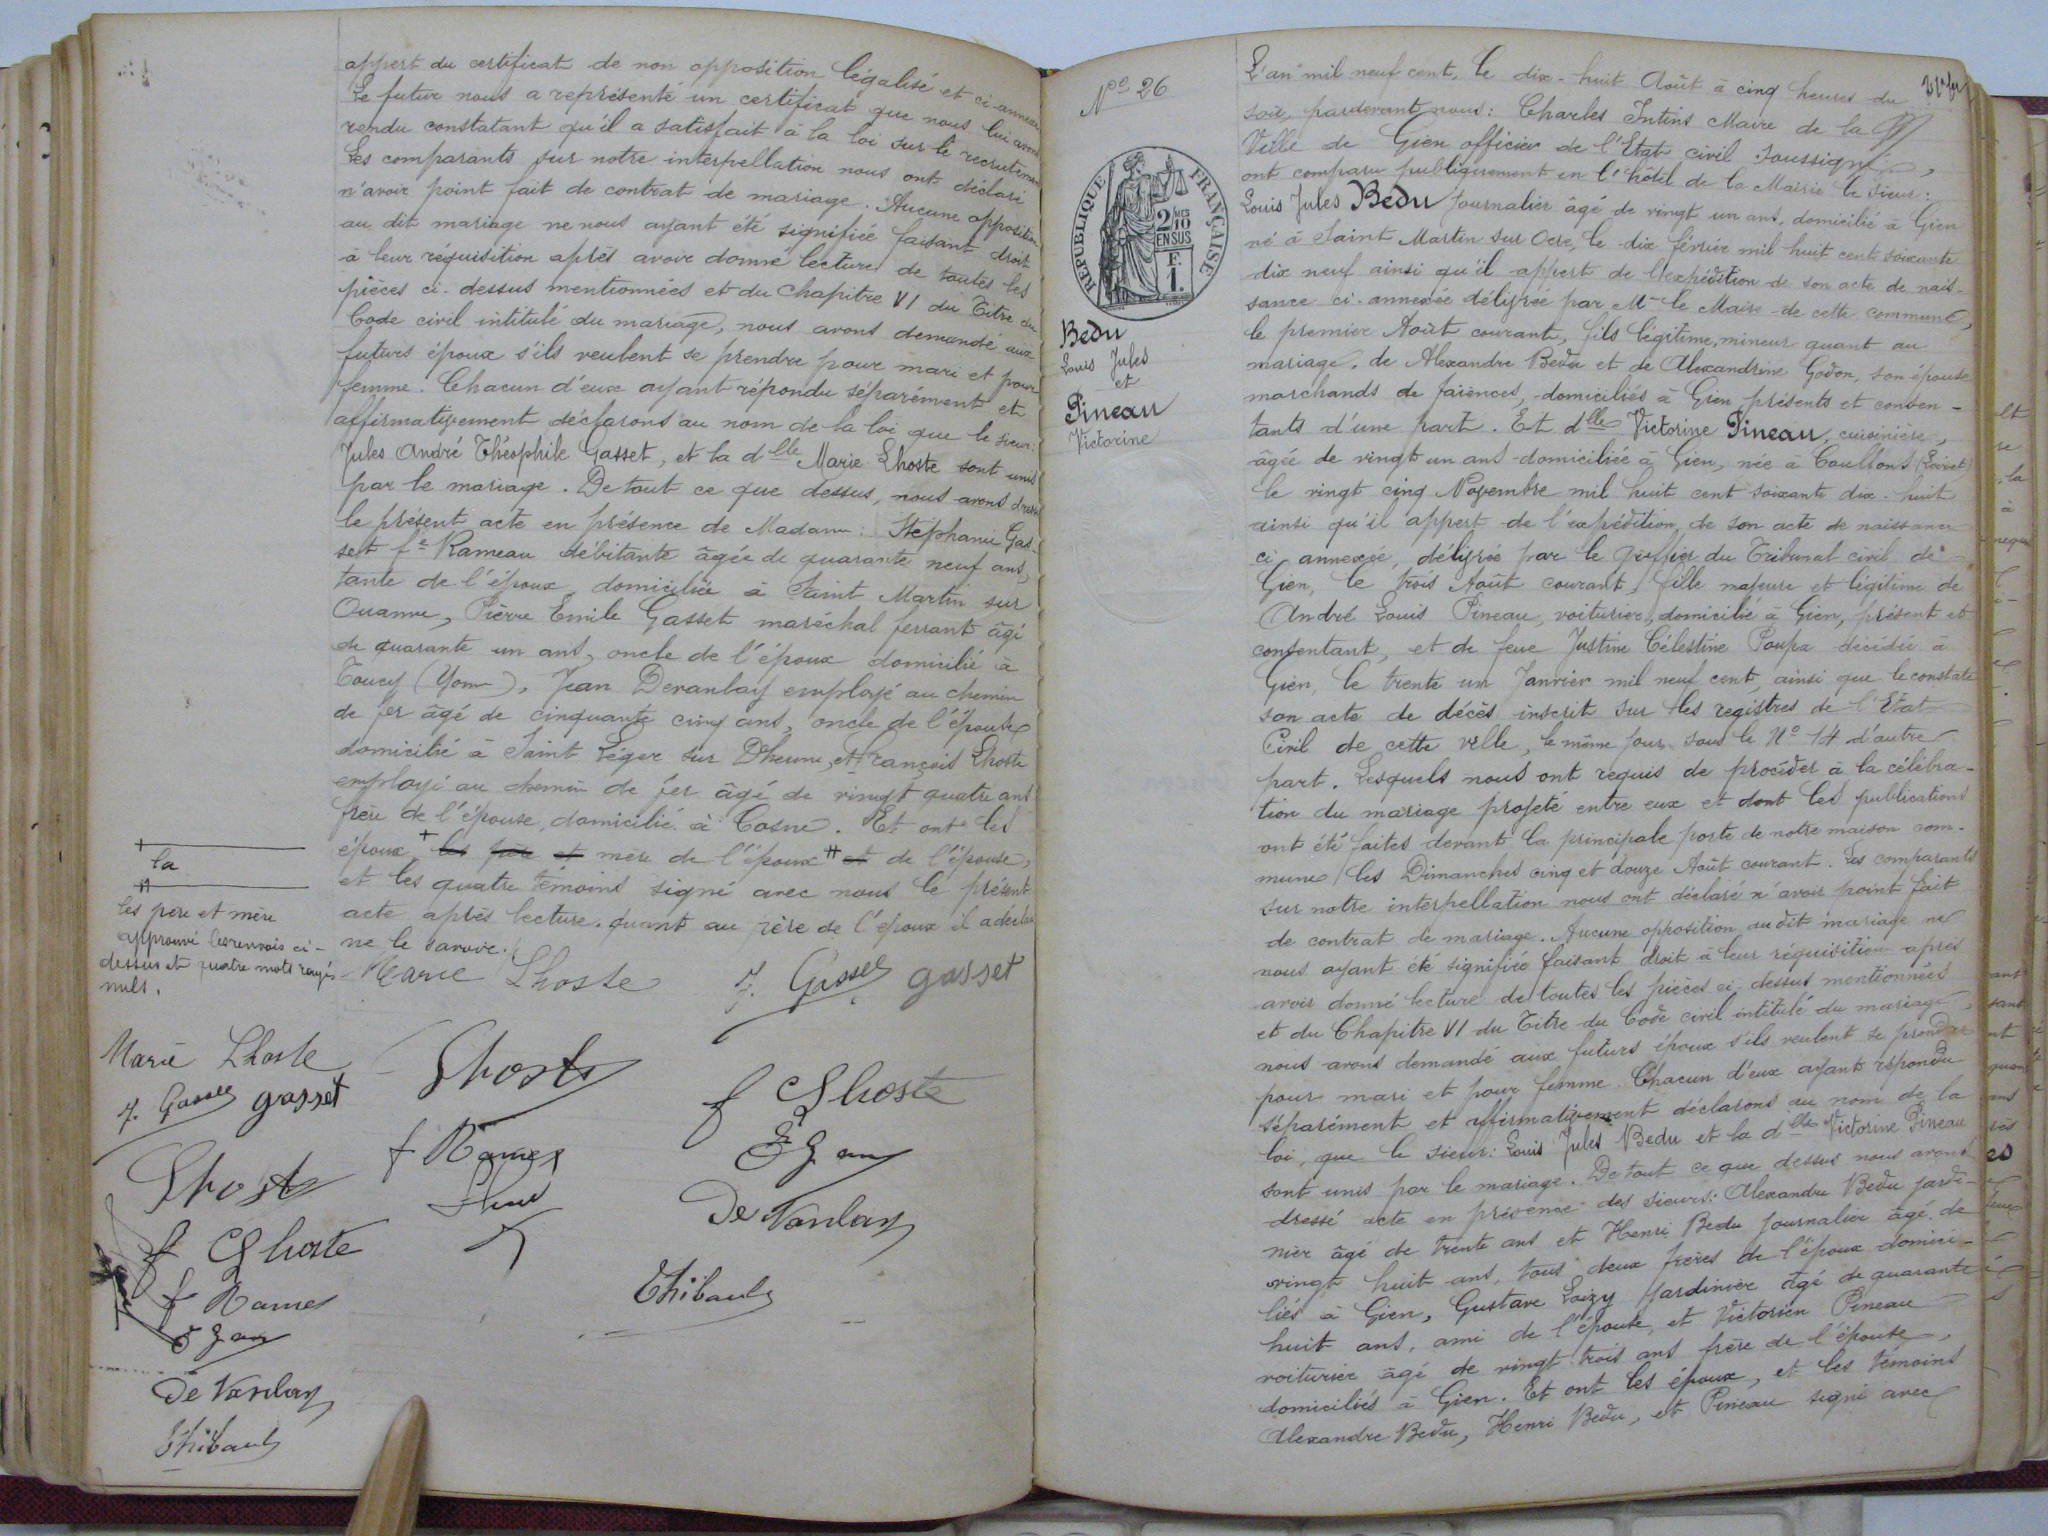 appert du certificat de non opposition légalisé et ci-annexé
Le futur nous a représenté un certificat que nous lui avons
rendu constatant qu'il a satisfait à la loi sur le recrutement
Les comparants sur notre interpellation nous ont déclaré
n'avoir point fait de contrat de mariage. Aucune opposition
au dit mariage ne nous ayant été signifiée faisant droit
à leur réquisition après avoir donné lecture de toutes les
pièces ci-dessus mentionnées et du chapitre VI du Titre du
Code civil intitulé du mariage, nous avons demandé aux
futurs époux s'ils veulent se prendre pour mari et pour
femme. Chacun d'eux ayant répondu séparément et
affirmativement déclarons au nom de la loi que le sieur:
Jules André Théophile Gasset, et la dlle Marie Lhoste sont unis
par le mariage. De tout ce que dessus, nous avons dressé
le présent acte en présence de Madame: Stéphanie Gas-
set fe Rameau débitante âgée de quarante neuf ans,
tante de l'époux domiciliée à Saint Martin sur
Ouanne, Pierre Emile Gasset maréchal ferrant âgé
de quarante un ans, oncle de l'époux domicilié à
Toucy (Yonne), Jean Devanlay employé au chemin
de fer âgé de cinquante cinq ans, oncle de l'épouse
domicilié à Saint Léger sur Dheune, et François Lhoste
employé au chemin de fer âgé de vingt quatre ans
frère de l'épouse, domicilié à Cosne. Et ont les
époux + les père et mère de l'époux # et de l'épouse,
et les quatre témoins signé avec nous le présent
acte après lecture. quant au père de l'époux il a déclaré
ne le savoir.
+
la
#
les père et mère
approuvé les renvois ci-
dessus et quatre mots rayés
nuls.
Marie Lhoste J. Gasset gasset
Marie Lhoste
J. Gasset gasset
Lhoste
f Lhoste
f Rameau
De Vanlay
Thibault
Lhoste
f Lhoste
f Rameau
De Vanlay
Thibault
No 26
REPUBLIQUE FRANÇAISE
2 MES 10
EN SUS
F.
1.
Bedu
Louis Jules
et
Pineau
Victorine
L'an mil neuf cent, le dix-huit Août à cinq heures du
soir, pardevant nous: Charles Intins Maire de la
Ville de Gien officier de l'Etat civil soussigné,
ont comparu publiquement en l'hôtel de la Mairie le sieur:
Louis Jules Bedu journalier âgé de vingt un ans, domicilié à Gien
né à Saint Martin sur Ocre, le dix février mil huit cent soixante
dix neuf ainsi qu'il appert de l'expédition de son acte de nais-
sance ci-annexée délivrée par Mr le Maire de cette commune,
le premier Août courant, fils légitime, mineur quant au
mariage, de Alexandre Bedu et de Alexandrine Godon, son épouse
marchands de faïences, domiciliés à Gien présents et consen-
tants d'une part. Et dlle Victorine Pineau, cuisinière,
âgée de vingt un ans domiciliée à Gien, née à Coullons (Loiret)
le vingt cinq Novembre mil huit cent soixante dix-huit
ainsi qu'il appert de l'expédition de son acte de naissance
ci annexée, délivrée par le Greffier du Tribunal civil de
Gien, le trois Août courant, fille majeure et légitime de
André Louis Pineau, voiturier, domicilié à Gien, présent et
consentant, et de feue Justine Célestine Poupa décédée à
Gien, le trente un Janvier mil neuf cent, ainsi que le constate
son acte de décès inscrit sur les registres de l'Etat
Civil de cette ville, le même jour sous le No 14 d'autre
part. Lesquels nous ont requis de procéder à la célébra-
tion du mariage projeté entre eux et dont les publications
ont été faites devant la principale porte de notre maison com-
mune, les Dimanches cinq et douze Août courant. Les comparants
sur notre interpellation nous ont déclaré n'avoir point fait
de contrat de mariage. Aucune opposition au dit mariage ne
nous ayant été signifiée faisant droit à leur réquisition après
avoir donné lecture de toutes les pièces ci-dessus mentionnées
et du Chapitre VI du Titre du Code civil intitulé du mariage,
nous avons demandé aux futurs époux s'ils veulent se prendre
pour mari et pour femme. Chacun d'eux ayant répondu
séparément et affirmativement déclarons au nom de la
loi, que le sieur: Louis Jules Bedu et la dlle Victorine Pineau
sont unis par le mariage. De tout ce que dessus nous avons
dressé acte en présence des sieurs: Alexandre Bedu jardi-
nier âgé de trente ans et Henri Bedu journalier âgé de
vingt huit ans, tous deux frères de l'époux domici-
liés à Gien, Gustave Loizy jardinier âgé de quarante
huit ans, ami de l'épouse, et Victorien Pineau
voiturier âgé de vingt trois ans frère de l'épouse,
domiciliés à Gien. Et ont les époux, et les témoins
Alexandre Bedu, Henri Bedu, et Pineau signé avec